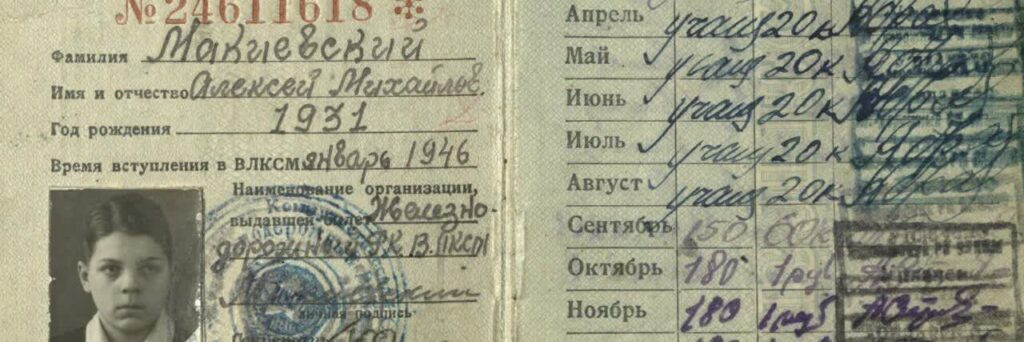 №24611618 *
Фамилия Макиевский
Имя и отчество Алексей Михайлов.
Год рождения 1931
Время вступления в ВЛКСМ январь 1946
Наименование организации,
выдавшей билет Железно-
дорожный РК ВЛКСМ
личная подпись
Апрель учащ 20к
Май учащ 20к
Июнь учащ 20к
Июль учащ 20к
Август учащ 20к
Сентябрь 150 60к
Октябрь 180 1руб
Ноябрь 180 1руб